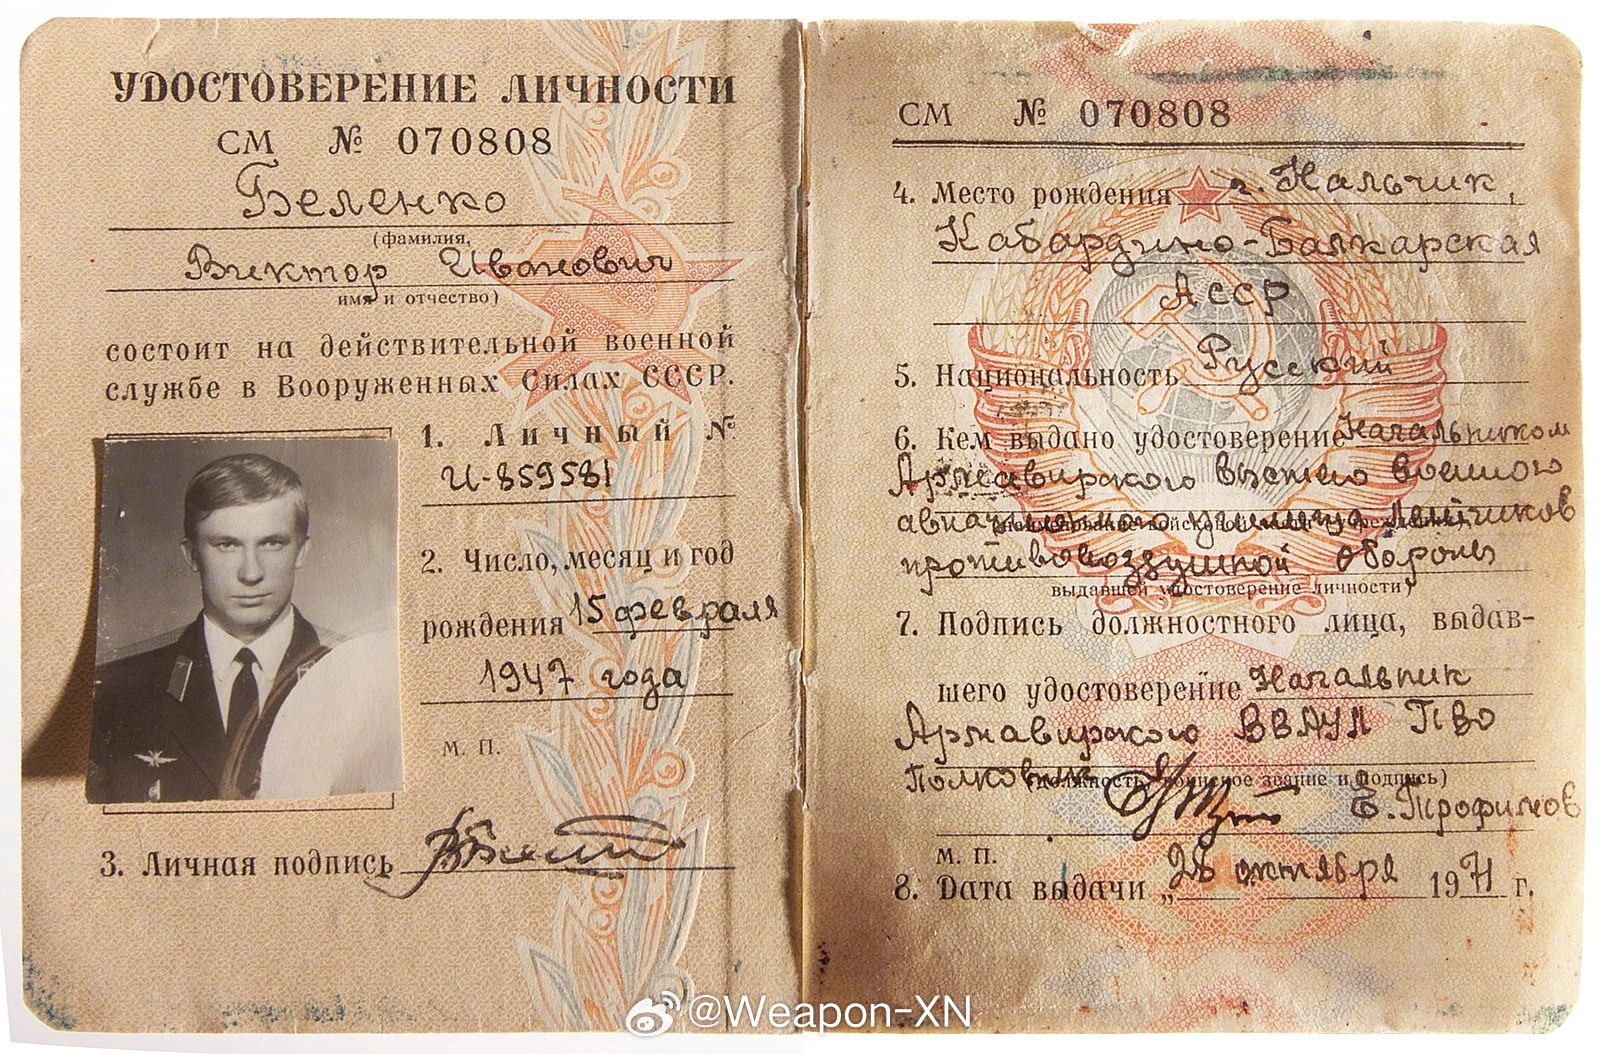 УДОСТОВЕРЕНИЕ ЛИЧНОСТИ
СМ № 070808
Беленко
(фамилия,
Виктор Иванович
имя и отчество)
состоит на действительной военной
службе в Вооруженных Силах СССР.
1. Личный №
И-859581
2. Число, месяц и год
рождения 15 февраля
1947 года
М. П.
3. Личная подпись
СМ № 070808
4. Место рождения г. Нальчик,
Кабардино-Балкарская
АССР
5. Национальность Русский
6. Кем выдано удостоверение Начальником
Армавирского высшего военного
авиационного училища летчиков
противовоздушной обороны
выдавшей удостоверение личности)
7. Подпись должностного лица, выдав-
шего удостоверение Начальник
Армавирского ВВАУЛ ПВО
Полковник
(должность, воинское звание и подпись)
Е. Трофимов
М. П.
8. Дата выдачи „28 октября 1971 г.
@Weapon-XN